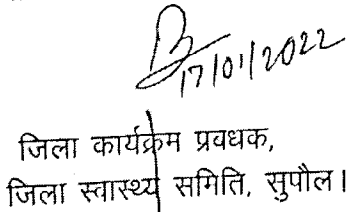 17/01/2022
जिला कार्यक्रम प्रवधक,
जिला स्वास्थ्य समिति, सुपौल।